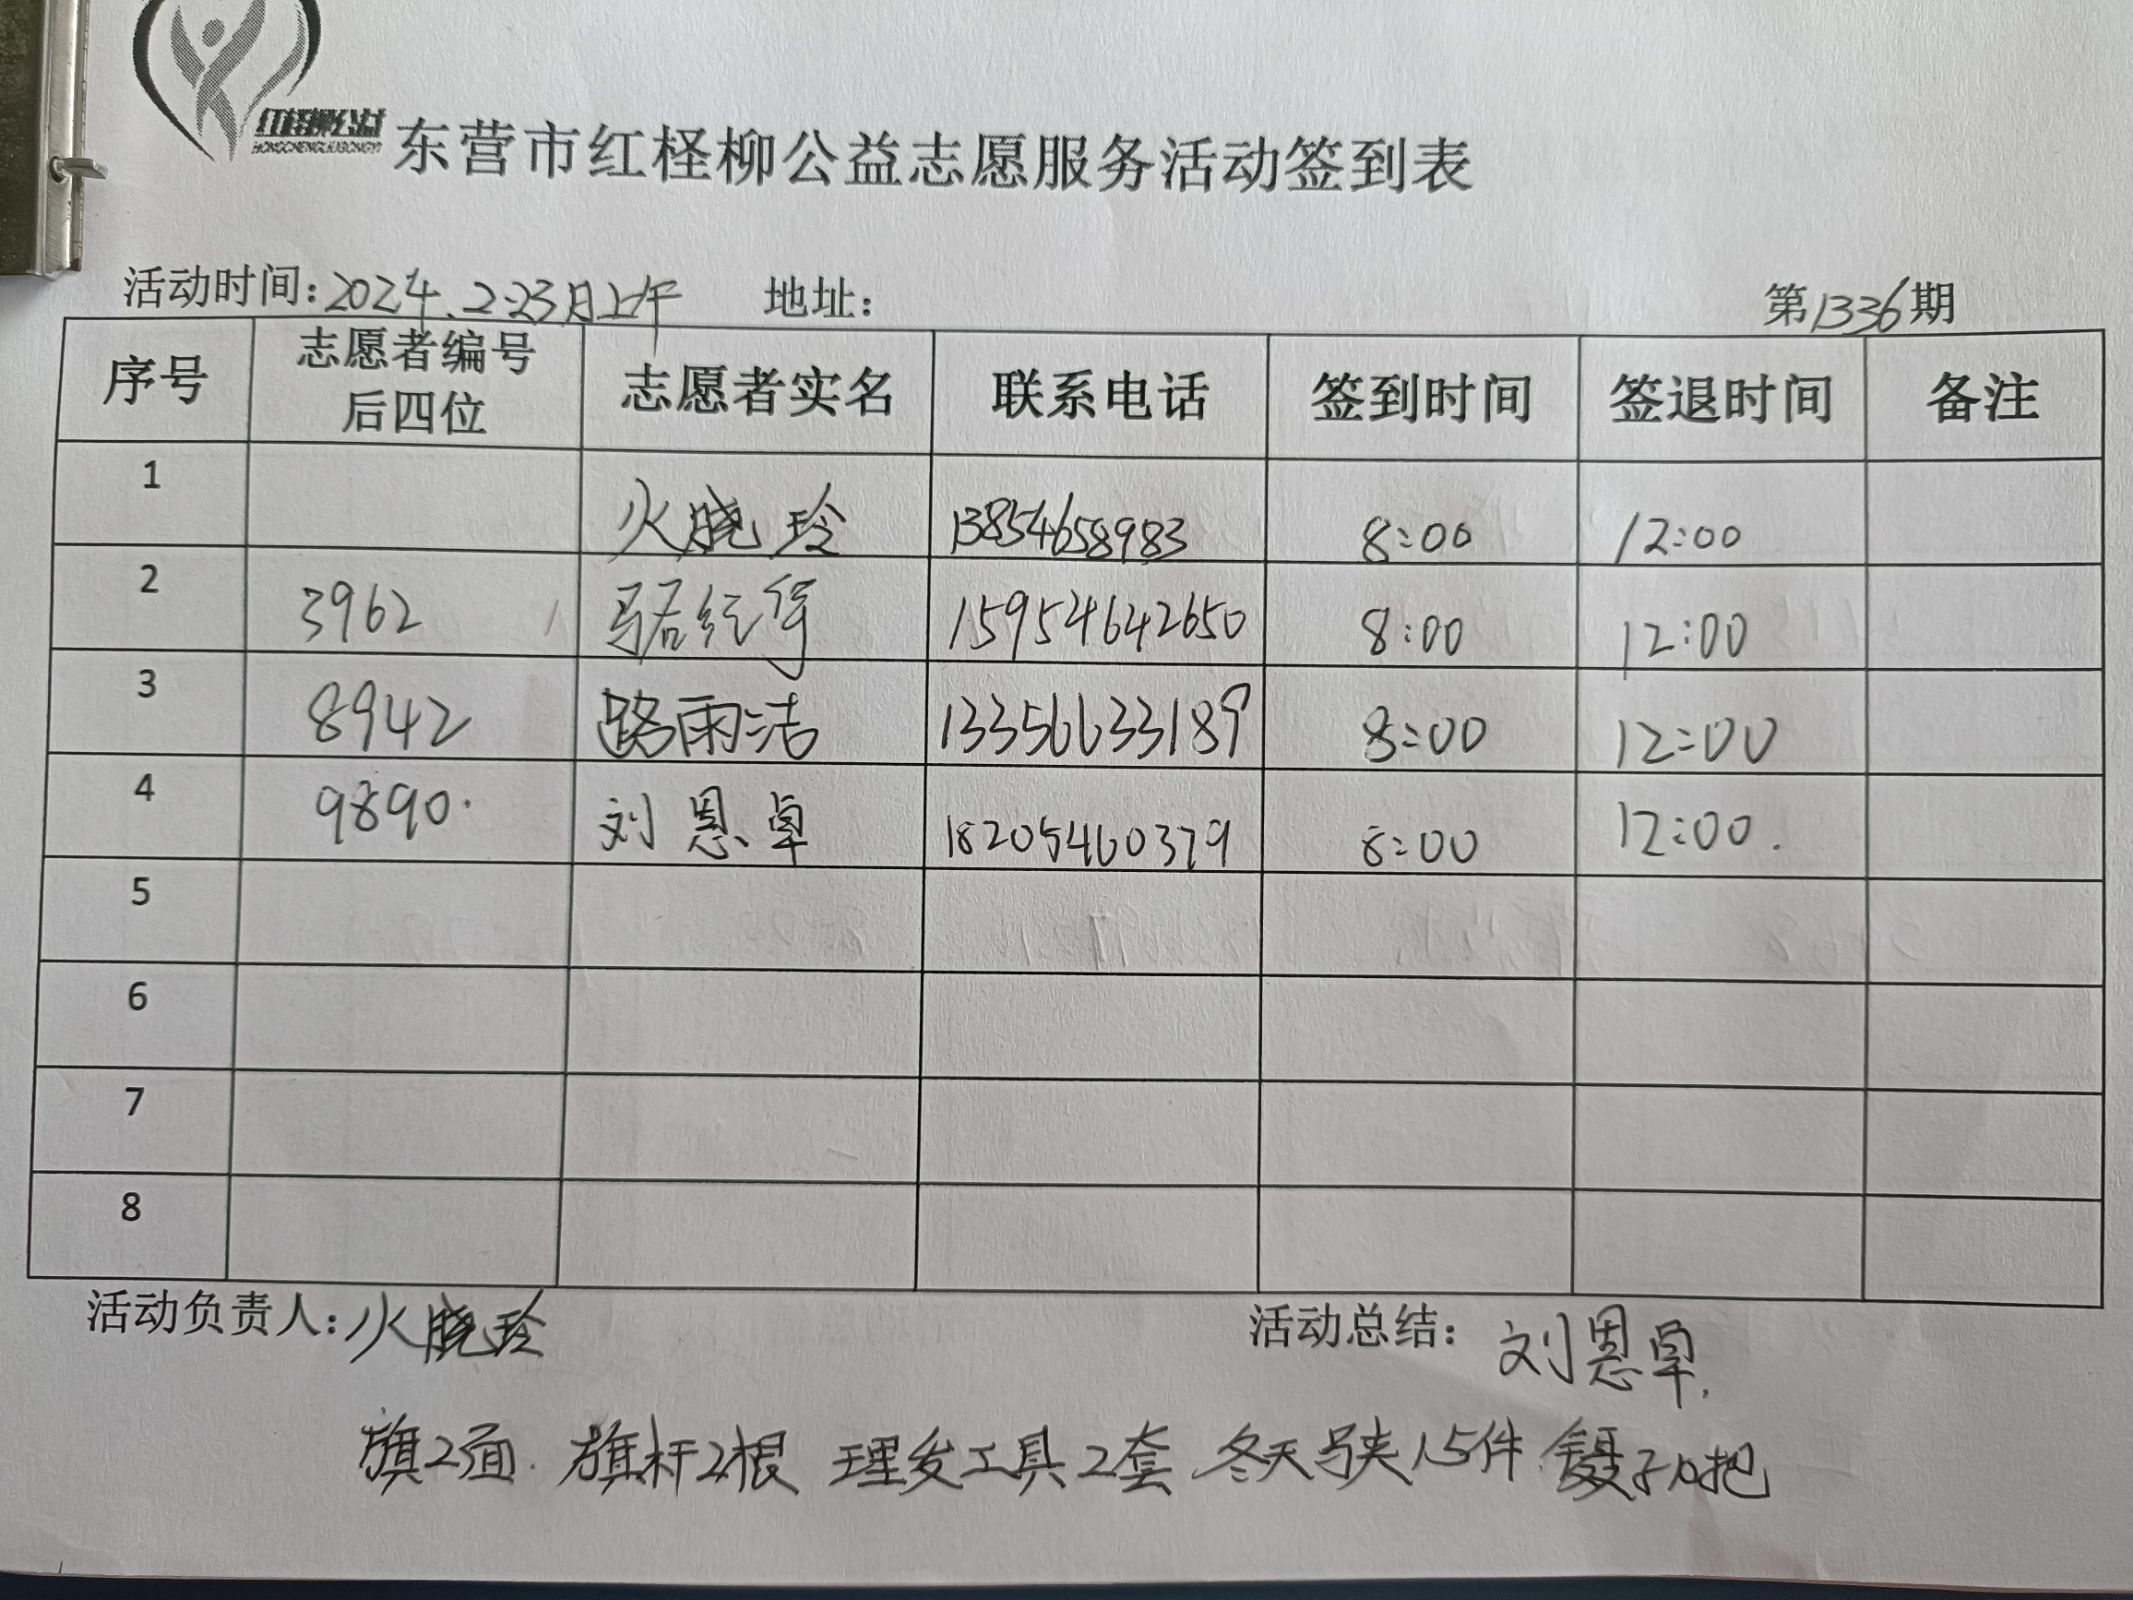 红柽柳公益
HONGCHENGLIUGONGYI
东营市红柽柳公益志愿服务活动签到表
活动时间：2024.2.23月上午 地址： 第1336期
序号 志愿者编号后四位 志愿者实名 联系电话 签到时间 签退时间 备注
1 火晓玲 13854658983 8:00 12:00
2 3962 15954642650 8:00 12:00
3 8942 路雨洁 13356633189 8:00 12:00
4 9890. 刘恩卓 18205460379 8:00 12:00.
5
6
7
8
活动负责人：火晓玲 活动总结：刘恩卓.
旗2面. 旗杆2根 理发工具2套 冬天马夹15件 镊子10把